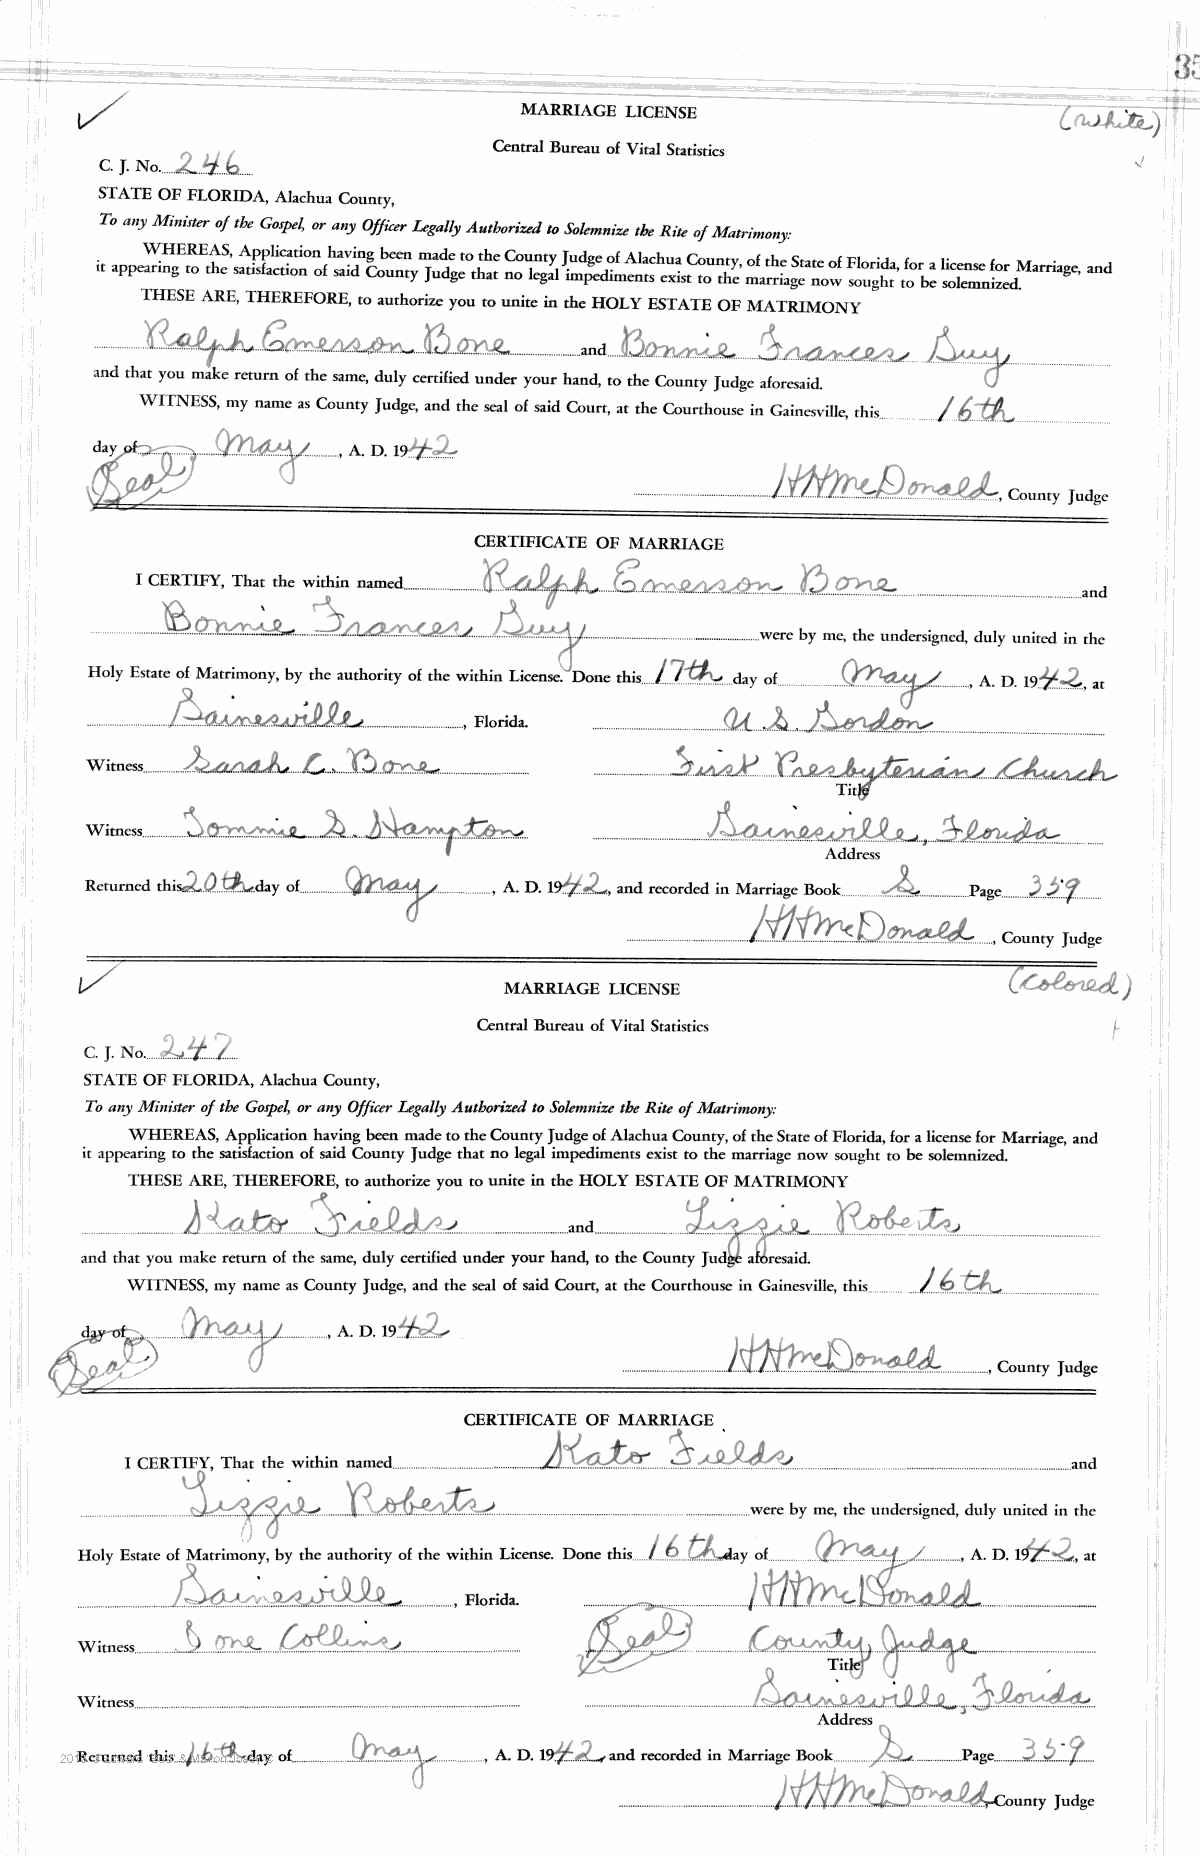 35
MARRIAGE LICENSE
(White)
Central Bureau of Vital Statistics
C. J. No. 246
STATE OF FLORIDA, Alachua County,
To any Minister of the Gospel, or any Officer Legally Authorized to Solemnize the Rite of Matrimony:
WHEREAS, Application having been made to the County Judge of Alachua County, of the State of Florida, for a license for Marriage, and
it appearing to the satisfaction of said County Judge that no legal impediments exist to the marriage now sought to be solemnized.
THESE ARE, THEREFORE, to authorize you to unite in the HOLY ESTATE OF MATRIMONY
Ralph Emerson Bone and Bonnie Frances Guy
and that you make return of the same, duly certified under your hand, to the County Judge aforesaid.
WITNESS, my name as County Judge, and the seal of said Court, at the Courthouse in Gainesville, this 16th
day of May, A. D. 1942
(Seal)
HHMcDonald, County Judge
CERTIFICATE OF MARRIAGE
I CERTIFY, That the within named Ralph Emerson Bone and
Bonnie Frances Guy were by me, the undersigned, duly united in the
Holy Estate of Matrimony, by the authority of the within License. Done this 17th day of May, A. D. 1942, at
Gainesville, Florida. U. S. Gordon
Witness Sarah C. Bone First Presbyterian Church
Title
Witness Tommie S. Hampton Gainesville, Florida
Address
Returned this 20th day of May, A. D. 1942, and recorded in Marriage Book S Page 359
HHMcDonald, County Judge
(Colored)
MARRIAGE LICENSE
Central Bureau of Vital Statistics
C. J. No. 247
STATE OF FLORIDA, Alachua County,
To any Minister of the Gospel, or any Officer Legally Authorized to Solemnize the Rite of Matrimony:
WHEREAS, Application having been made to the County Judge of Alachua County, of the State of Florida, for a license for Marriage, and
it appearing to the satisfaction of said County Judge that no legal impediments exist to the marriage now sought to be solemnized.
THESE ARE, THEREFORE, to authorize you to unite in the HOLY ESTATE OF MATRIMONY
Kato Fields and Lizzie Roberts
and that you make return of the same, duly certified under your hand, to the County Judge aforesaid.
WITNESS, my name as County Judge, and the seal of said Court, at the Courthouse in Gainesville, this 16th
day of May, A. D. 1942
(Seal)
HHMcDonald, County Judge
CERTIFICATE OF MARRIAGE
I CERTIFY, That the within named Kato Fields and
Lizzie Roberts were by me, the undersigned, duly united in the
Holy Estate of Matrimony, by the authority of the within License. Done this 16th day of May, A. D. 1942, at
Gainesville, Florida. HHMcDonald
Witness Collins (Seal) County Judge
Title
Witness Gainesville, Florida
Address
Returned this 16th day of May, A. D. 1942, and recorded in Marriage Book S Page 359
HHMcDonald, County Judge